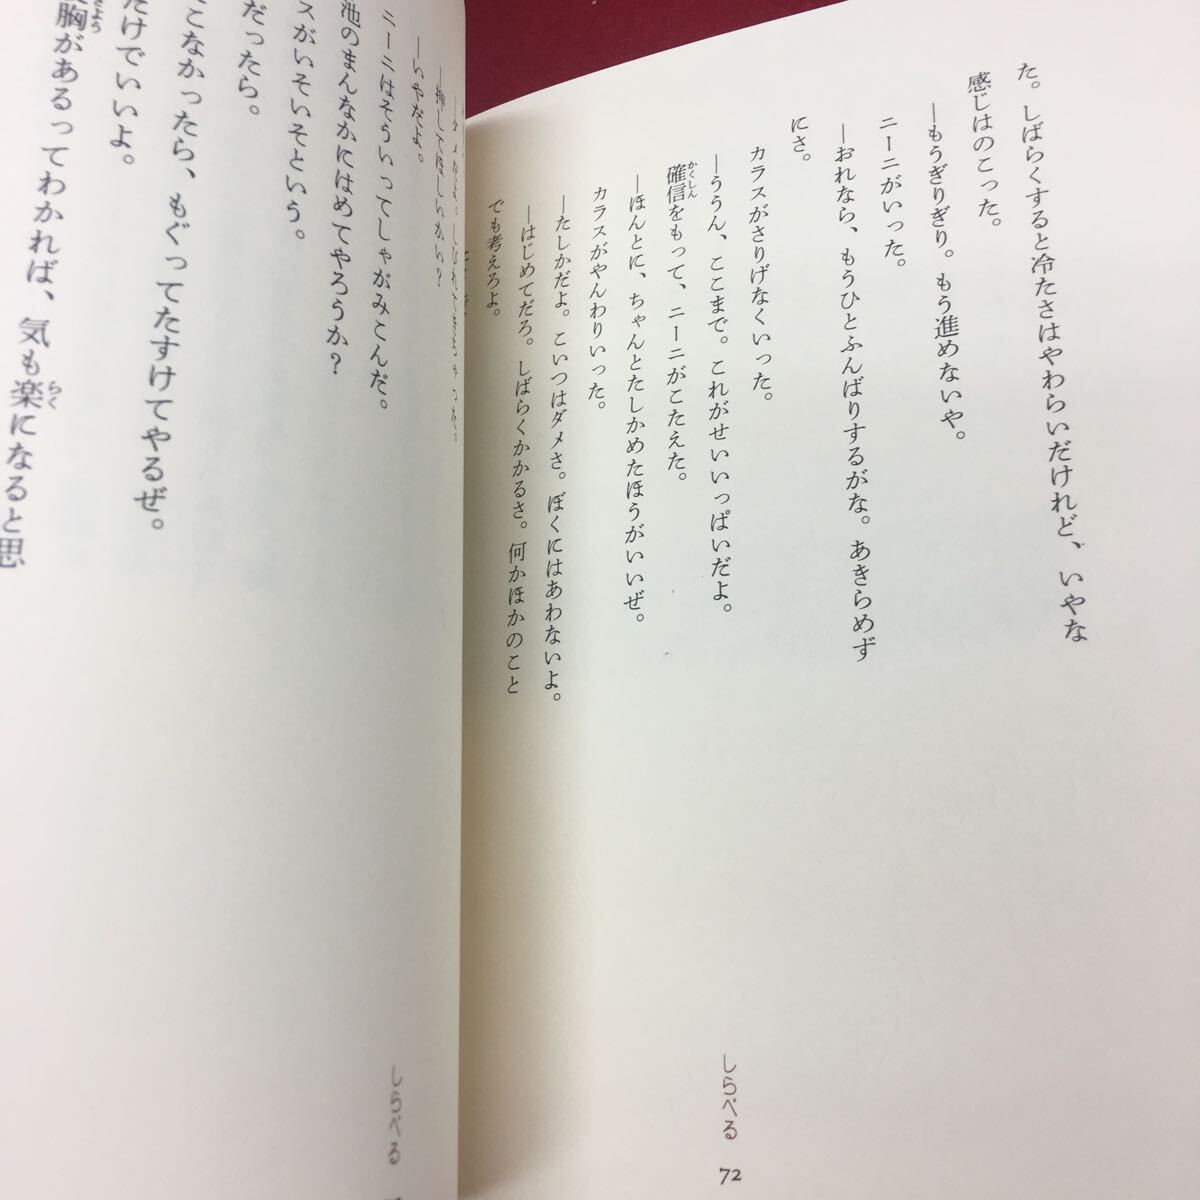 た。しばらくすると冷たさはやわらいだけれど、いやな
感じはのこった。
―もうぎりぎり。もう進めないや。
ニーニがいった。
―おれなら、もうひとふんばりするがな。あきらめず
にさ。
カラスがさりげなくいった。
―ううん、ここまで。これがせいいっぱいだよ。
確信をもって、ニーニがこたえた。
かくしん
―ほんとに、ちゃんとたしかめたほうがいいぜ。
カラスがやんわりいった。
―たしかだよ。こいつはダメさ。ぼくにはあわないよ。
―はじめてだろ。しばらくかかるさ。何かほかのこと
でも考えろよ。
しらべる
72
―押してほしいかい?
―いやだよ。
ニーニはそういってしゃがみこんだ。
池のまんなかにはめてやろうか?
スがいそいそという。
だったら。
こなかったら、もぐってたすけてやるぜ。
だけでいいよ。
胸があるってわかれば、気も楽になると思
きょう
らく
しらべる